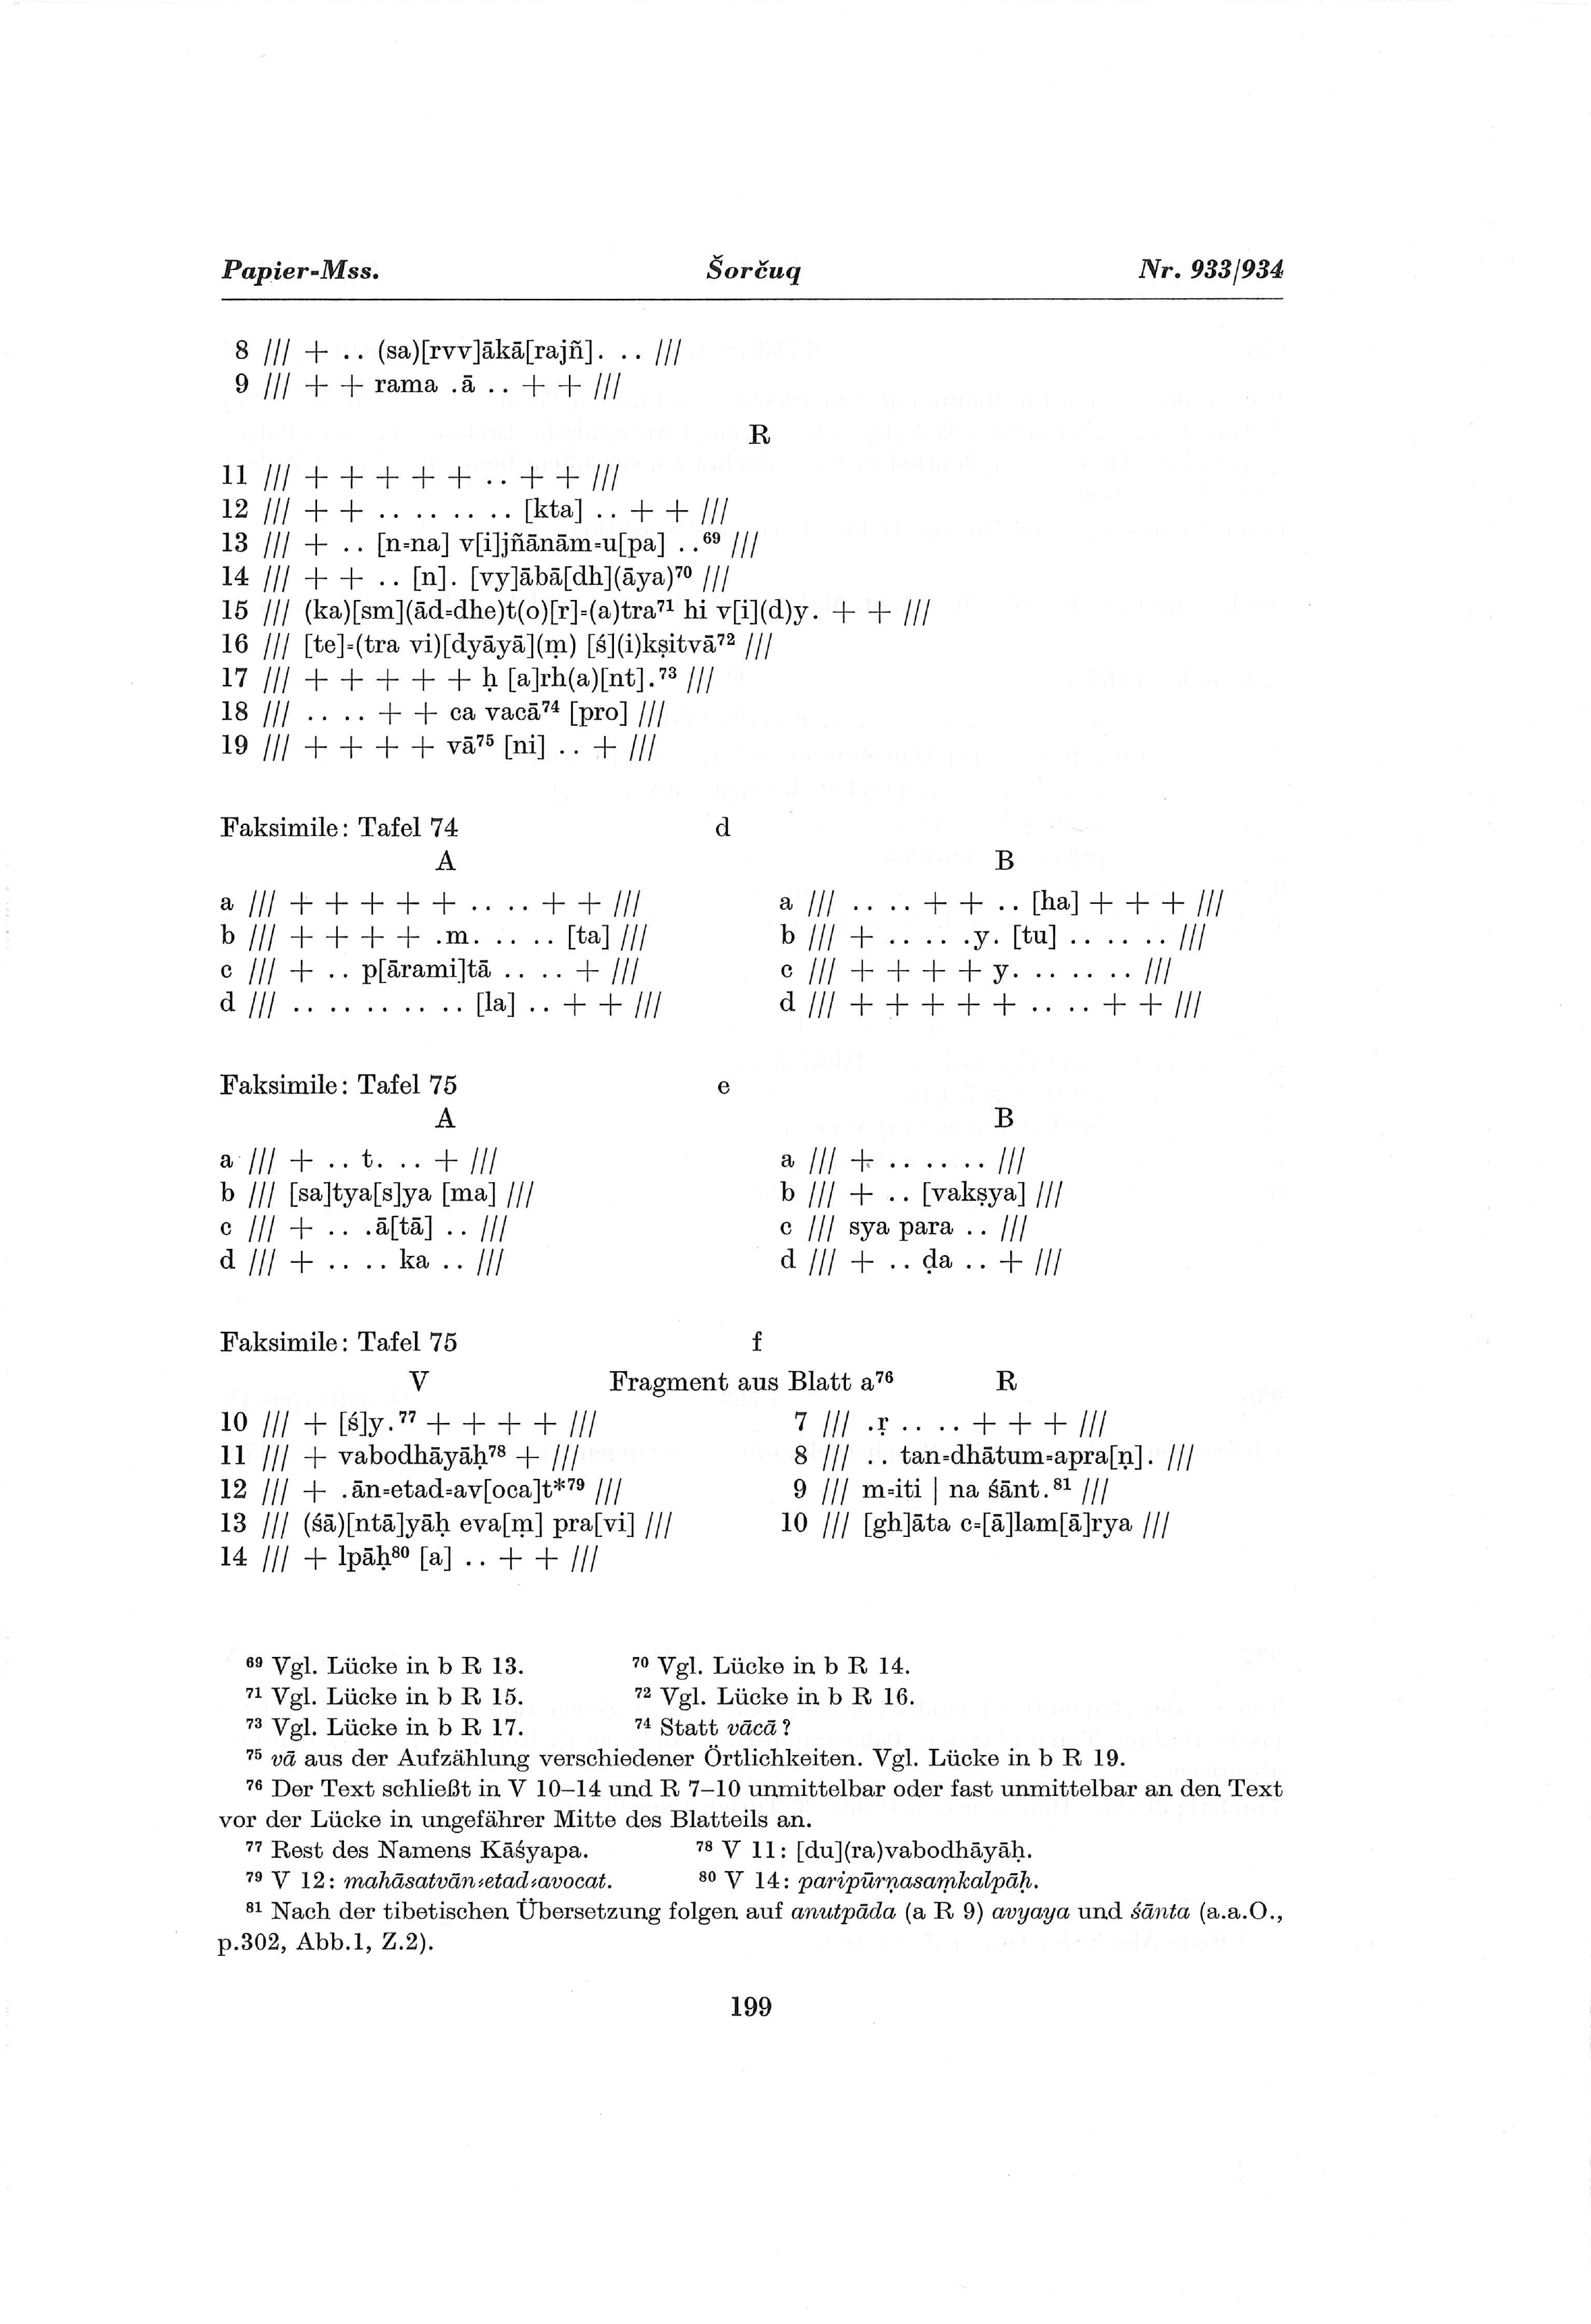 Papier-Mss. Šorčuq Nr. 933/934
8 /// + . . (sa)[rvv]ākā[rajñ]. . . ///
9 /// + + rama .ā . . + + ///
R
11 /// + + + + + . . + + ///
12 /// + + . . . . . . . . [kta] . . + + ///
13 /// + . . [n=na] v[i]jñānām=u[pa] . .⁶⁹ ///
14 /// + + . . [n]. [vy]ābā[dh](āya)⁷⁰ ///
15 /// (ka)[sm](ād=dhe)t(o)[r]=(a)tra⁷¹ hi v[i](d)y. + + ///
16 /// [te]=(tra vi)[dyāyā](ṃ) [ś](i)kṣitvā⁷² ///
17 /// + + + + + ḥ [a]rh(a)[nt].⁷³ ///
18 /// . . . . + + ca vacā⁷⁴ [pro] ///
19 /// + + + + vā⁷⁵ [ni] . . + ///
Faksimile: Tafel 74 d
A B
a /// + + + + + . . . . + + /// a /// . . . . + + . . [ha] + + + ///
b /// + + + + .m. . . . . [ta] /// b /// + . . . . .y. [tu] . . . . . . ///
c /// + . . p[ārami]tā . . . . + /// c /// + + + + y. . . . . . . ///
d /// . . . . . . . . . . [la] . . + + /// d /// + + + + + . . . . + + ///
Faksimile: Tafel 75 e
A B
a /// + . . t. . . + /// a /// + . . . . . . ///
b /// [sa]tya[s]ya [ma] /// b /// + . . [vakṣya] ///
c /// + . . .ā[tā] . . /// c /// sya para . . ///
d /// + . . . . ka . . /// d /// + . . ḍa . . + ///
Faksimile: Tafel 75 f
V Fragment aus Blatt a⁷⁶ R
10 /// + [ś]y.⁷⁷ + + + + /// 7 /// .ṛ . . . . + + + ///
11 /// + vabodhāyāḥ⁷⁸ + /// 8 /// . . tan=dhātum=apra[ṇ]. ///
12 /// + .ān=etad=av[oca]t*⁷⁹ /// 9 /// m=iti | na śānt.⁸¹ ///
13 /// (śā)[ntā]yāḥ eva[ṃ] pra[vi] /// 10 /// [gh]āta c=[ā]lam[ā]rya ///
14 /// + lpāḥ⁸⁰ [a] . . + + ///
⁶⁹ Vgl. Lücke in b R 13. ⁷⁰ Vgl. Lücke in b R 14.
⁷¹ Vgl. Lücke in b R 15. ⁷² Vgl. Lücke in b R 16.
⁷³ Vgl. Lücke in b R 17. ⁷⁴ Statt vācā?
⁷⁵ vā aus der Aufzählung verschiedener Örtlichkeiten. Vgl. Lücke in b R 19.
⁷⁶ Der Text schließt in V 10–14 und R 7–10 unmittelbar oder fast unmittelbar an den Text
vor der Lücke in ungefährer Mitte des Blatteils an.
⁷⁷ Rest des Namens Kāśyapa. ⁷⁸ V 11: [du](ra)vabodhāyāḥ.
⁷⁹ V 12: mahāsatvān=etad=avocat. ⁸⁰ V 14: paripūrṇasaṃkalpāḥ.
⁸¹ Nach der tibetischen Übersetzung folgen auf anutpāda (a R 9) avyaya und śānta (a.a.O.,
p.302, Abb.1, Z.2).
199